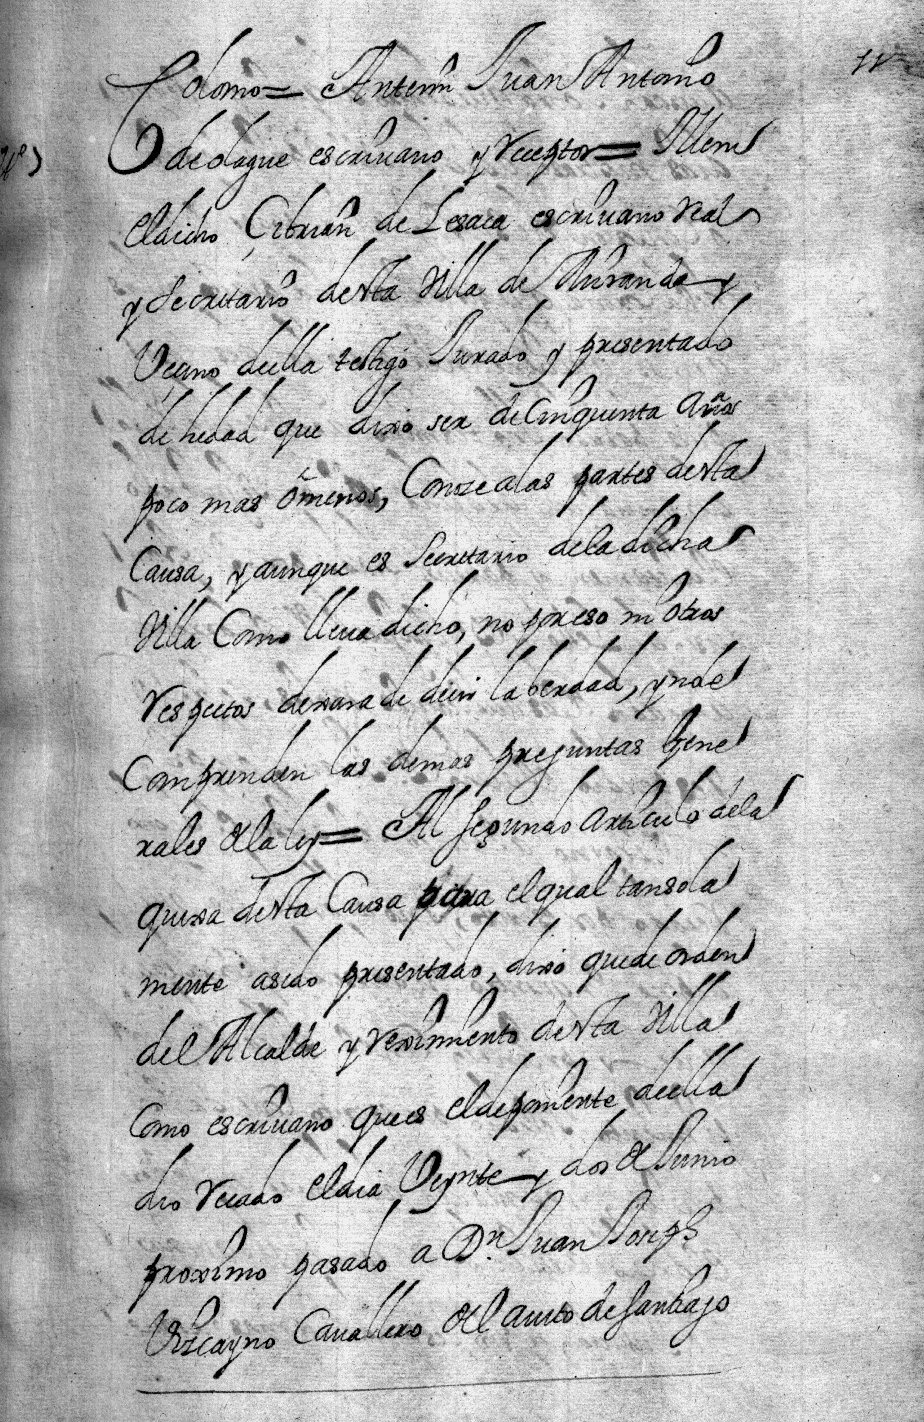 11
domo = Antemi Juan Antonio
de olague escrivano y Receptor = Iten
el dicho Cibrian de Lesaca escrivano Real
y Secretario desta Villa de Miranda y
Vecino deella testigo Jurado y presentado
de hedad que dixo ser de Cinquenta Años
poco mas o menos, Conoze a las partes desta
Causa, y aunque es Secretario de la dicha
Villa Como lleva dicho, no por eso ni otros
respectos dexara de decir la berdad, y no le
Comprenden las demas preguntas Gene
rales de la ley = Al segundo articulo de la
quexa desta Causa para el qual tan sola
mente a sido presentado, dixo que de orden
del Alcalde y reximiento desta Villa
Como escrivano que es el deponiente deella
dio recado el dia Veynte y dos de Junio
proximo passado a Dn Juan Joseph
Vizcayno Cavallero del avito de Santiago